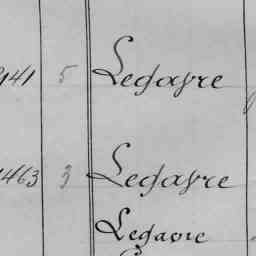 141 5 Legayre
1463 3 Legayre
Legayre